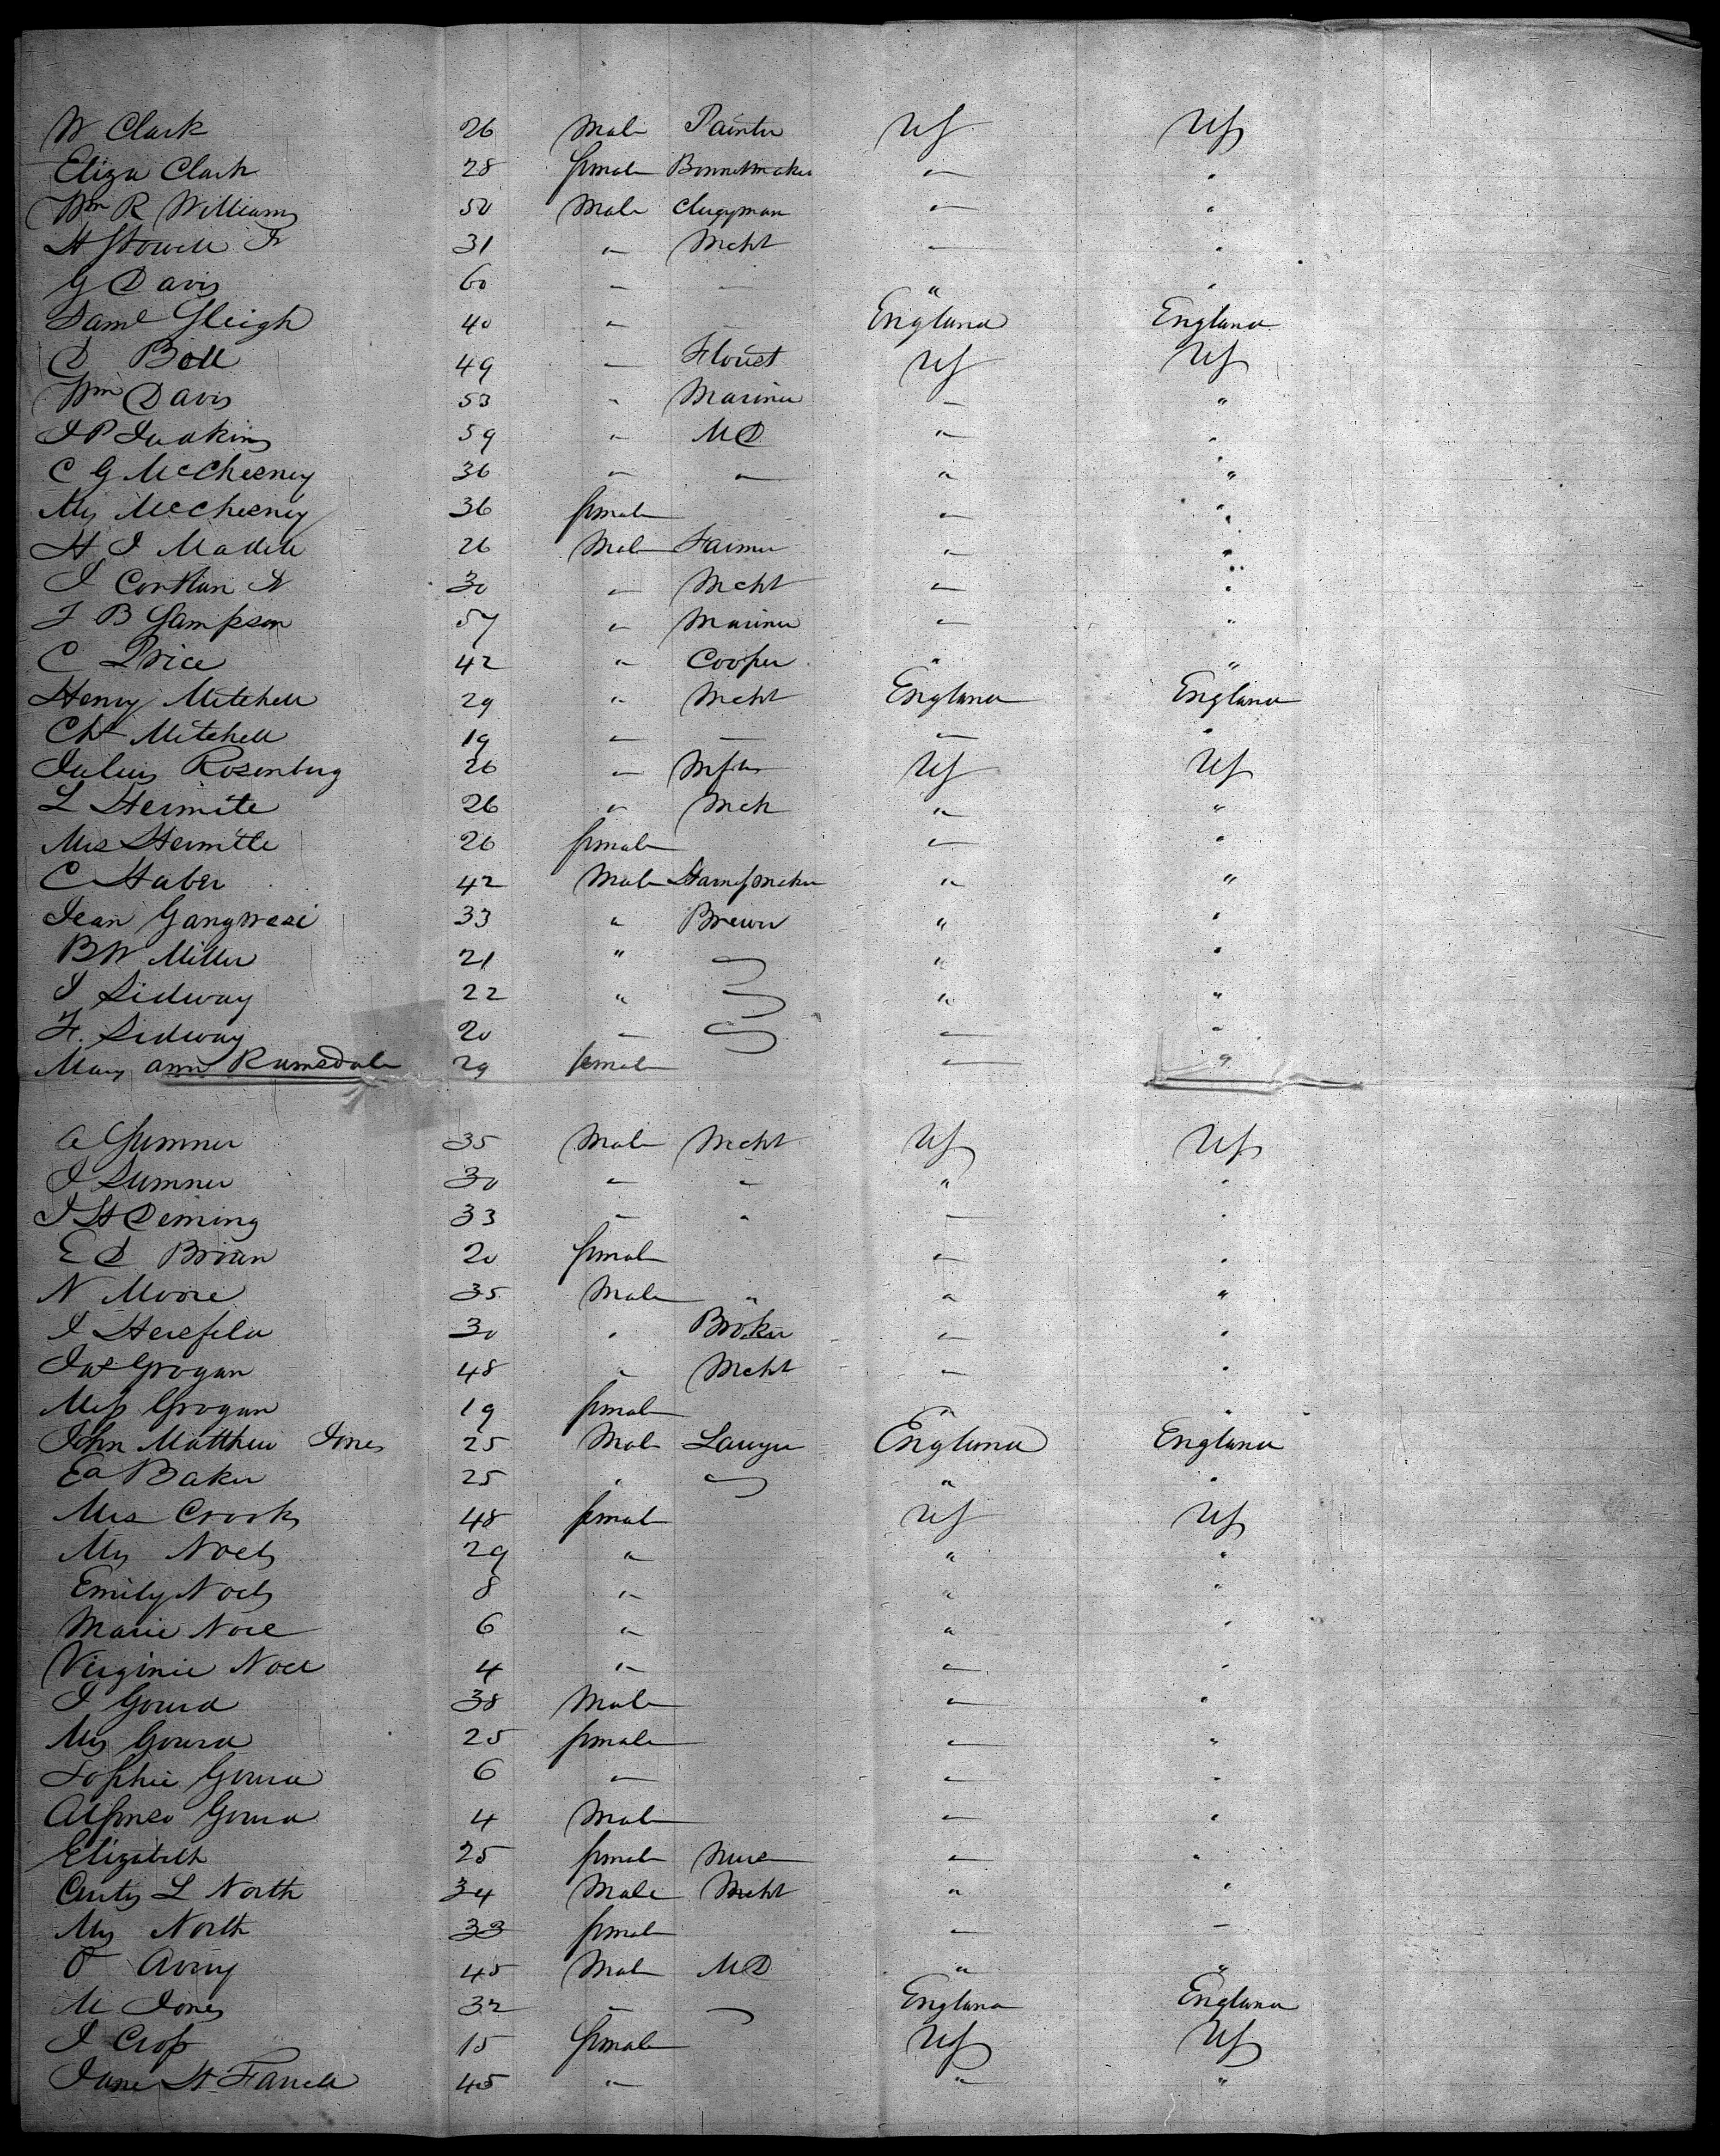 W Clark 26 Male Painter US US
Eliza Clark 28 female Bonnetmaker " "
Wm R Williams 50 Male Clergyman " "
H Stowell Jr 31 " Mcht " "
G Davis 60 " " " "
Saml Sleigh 40 " " England England
D Bell 49 " Florist US US
Wm Davis 53 " Mariner " "
J P Judkins 59 " MD " "
C G McChesney 36 " " " "
Mrs McChesney 36 female " "
H J Madell 26 Male Farmer " "
J Corthan Jr 30 " Mcht " "
F B Sampson 57 " Mariner " "
C Price 42 " Cooper " "
Henry Mitchell 29 " Mcht England England
Chs Mitchell 19 " " " "
Julius Rosenburg 26 " US US
L Hermite 26 " Mch " "
Mrs Hermitte 26 female " "
C Haber 42 Male Harnessmaker " "
Jean 33 " Brewer " "
BW Miller 21 " " "
J Sidway 22 " " "
F. Sidway 20 " " "
Mary ann Ramsdale 29 female " "
A Sumner 35 Male Mcht US US
J Sumner 30 " " " "
J H Deming 33 " " " "
E D Brian 20 female " "
N Moore 35 Male " " "
J Hersfeld 30 " Broker " "
Jas Grogan 48 " Mcht " "
Miss Grogan 19 female " "
John Matthew Jones 25 Male Lawyer England England
Ed Baker 25 " " "
Mrs Crooks 48 female US US
Mrs Noels 29 " " "
Emily Noels 8 " " "
Marie Noel 6 " " "
Virginie Noel 4 " " "
J Gourd 38 Male " "
Mrs Gourd 25 female " "
Sophie Gourd 6 " " "
Alfonso Gourd 4 Male " "
Elizabeth 25 female Nurse " "
Curtis L North 34 Male Mcht " "
Mrs North 33 female " "
O Avery 45 Male MD " "
M Jones 32 " England England
J Cross 15 female US US
Jane H Farrell 45 " " "